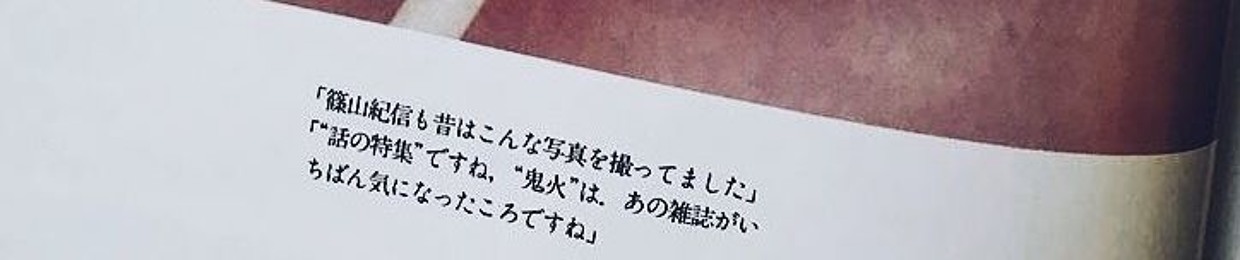 「篠山紀信も昔はこんな写真を撮ってました」
「“話の特集”ですね，“鬼火”は．あの雑誌がい
ちばん気になったころですね」